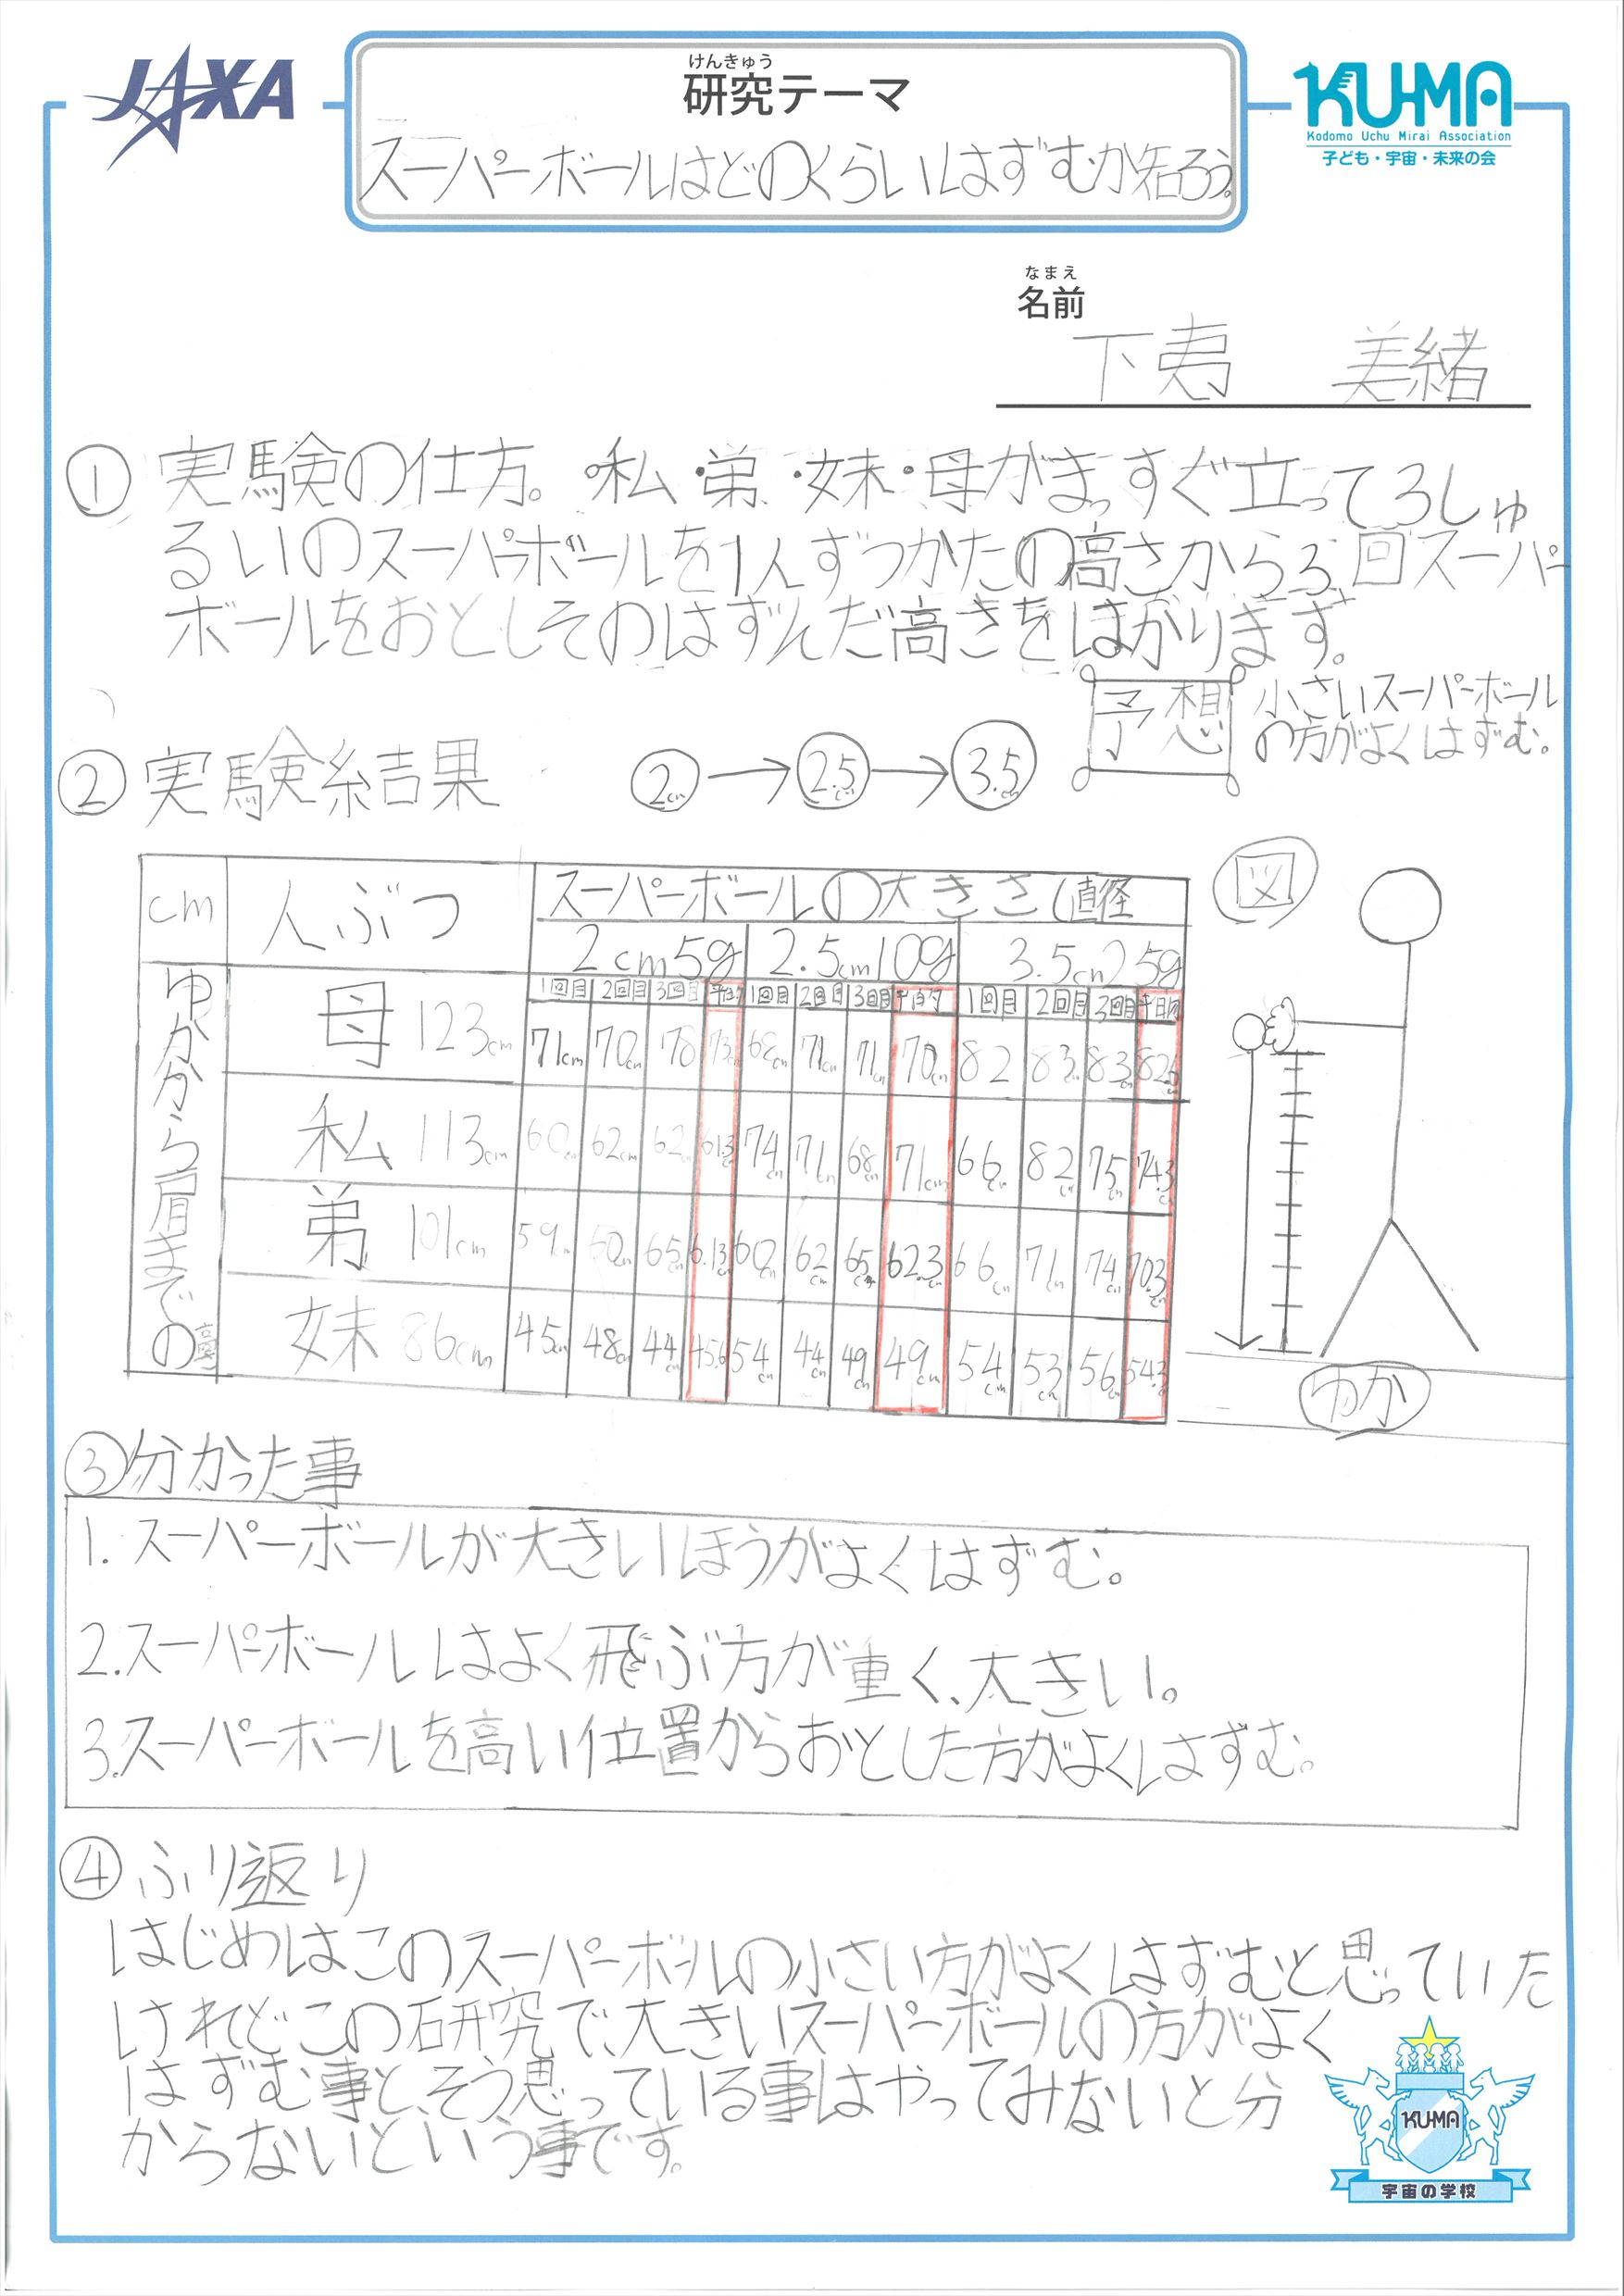 JAXA
けんきゅう
研究テーマ
KU-MA
Kodomo Uchu Mirai Association
子ども・宇宙・未来の会
スーパーボールはどのくらいはずむか知ろう。
なまえ
名前
下夷 美緒
① 実験の仕方。・私・弟・妹・母がまっすぐ立って3しゅ
るいのスーパーボールを1人ずつかたの高さから3回スーパー
ボールをおとしそのはずんだ高さをはかります。
予想 小さいスーパーボール
の方がよくはずむ。
② 実験結果 2cm → 2.5cm → 3.5cm
cm 人ぶつ スーパーボールの大きさ(直径 図
2cm5g 2.5cm10g 3.5cm25g
1回目 2回目 3回目 平均 1回目 2回目 3回目 平均 1回目 2回目 3回目 平均
ゆかから肩までの高さ
母 123cm 71cm 70cm 78 73cm 68cm 71cm 71cm 70cm 82 83cm 83cm
私 113cm 60cm 62cm 62cm 61.3cm 74cm 71cm 68cm 71cm 66cm 82cm 75cm 74.3cm
弟 101cm 59cm 60cm 65cm 6.13cm 60cm 62cm 65cm 62.3cm 66cm 71cm 74cm 70.3cm
妹 86cm 45cm 48cm 44cm 45.6 54cm 44cm 49cm 49cm 54cm 53cm 56cm 54.3cm
ゆか
③分かった事
1.スーパーボールが大きいほうがよくはずむ。
2.スーパーボールはよく飛ぶ方が重く、大きい。
3.スーパーボールを高い位置からおとした方がよくはずむ。
④ふり返り
はじめはこのスーパーボールの小さい方がよくはずむと思っていた
けれどこの研究で、大きいスーパーボールの方がよく
はずむ事と、そう思っている事はやってみないと分
からないという事です。
KU-MA
宇宙の学校